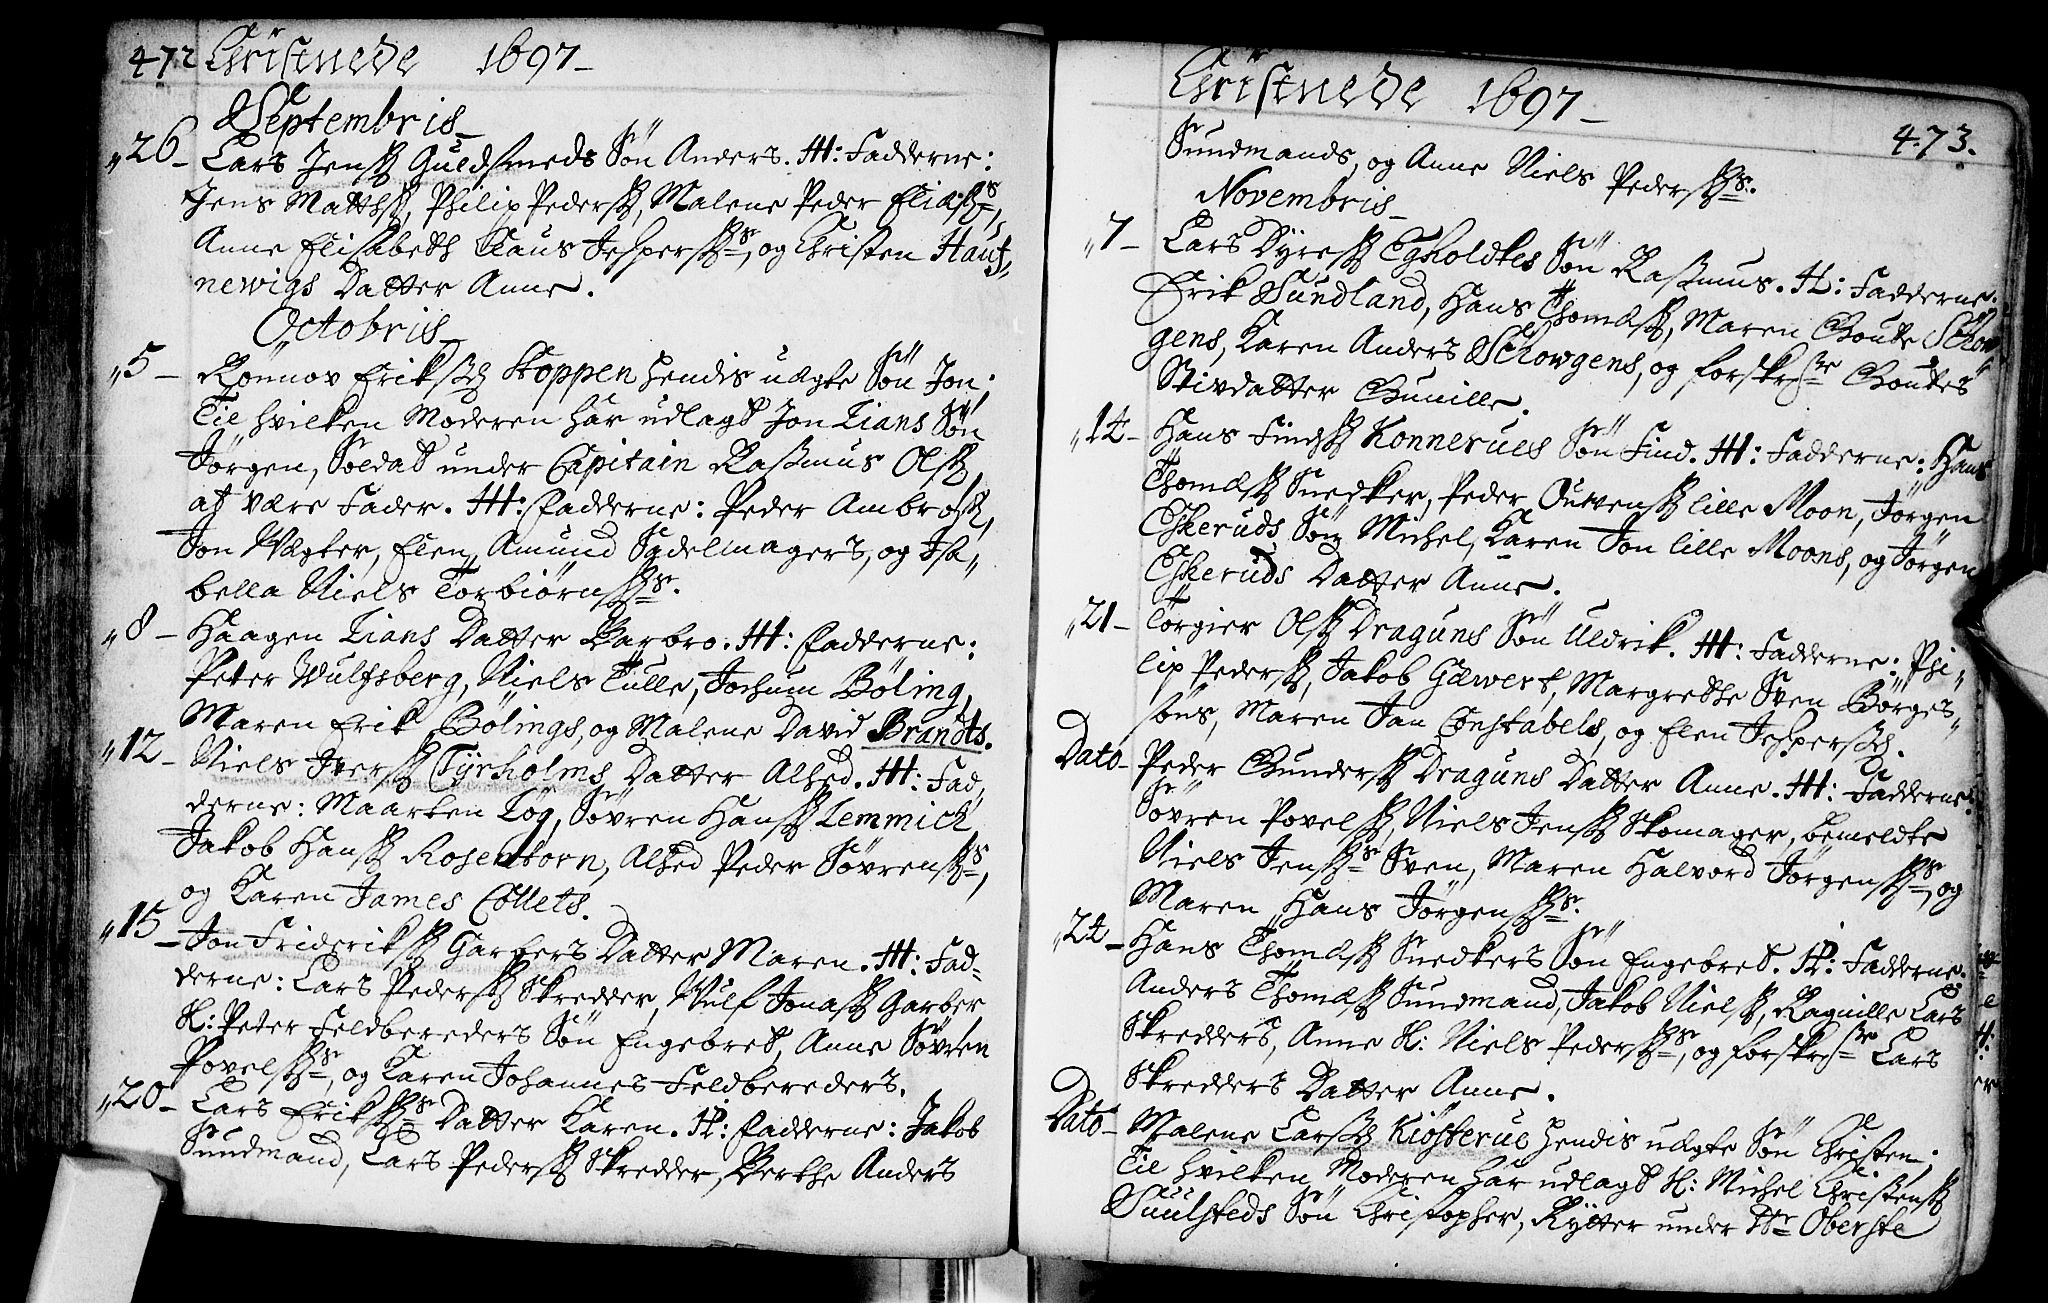 472 Christnede 1697
Septembris
26 Lars Jensß Guldsmeds Søn Anders. H: Fadderne:
Jens Mattsß, Philip Pedersß, Malene Peder Eliæsßs,
Anne Elisabeth Claus Jespersßs, og Christen Hauf„
newigs Datter Anne.
Octobris
5 Rønnov Eriksß Hoppen hendis uægte Søn Jon.
Til hvilken Moderen har udlagt Jon Lians Søn
Jørgen, Soldat under Capitain Rasmus Olsß
at være Fader. H: Fadderne: Peder Ambrosß,
Jon Vægter, Elen Amund Sadelmagers, og Isa„
bella Niels Torbiørnsßs.
8 Haagen Lians Datter Barbro. H: Fadderne:
Peter Wulfsberg, Niels Tulle, Jochum Bøling,
Maren Erik Bølings, og Malene David Brandts.
12 Niels Iversß Tyrholms Datter Alhed. H: Fad„
derne: Maarten Løg, Søvren Hansß Lemmich
Jakob Hansß Rosenborn, Alhed Peder Søvrensßs,
og Karen James Collets.
15 Jon Frideriksß Garfvers Datter Maren. H: Fad„
derne: Lars Pedersß Skredder, Wulf Jonasß Garver
H: Peter Feldbereders Søn Engebret, Anne Søvren
Povelsßs, og Karen Johannes Feldbereders.
20 Lars Eriksßs Datter Karen. H: Fadderne: Jakob
Sundmand, Lars Pedersß Skredder, Berthe Anders
Christnede 1697
473.
Sundmands, og Anne Niels Pedersßs.
Novembris
7 Lars Dyresß Egholdtes Søn Rasmus. H: Fadderne:
Erik Sundland, Hans Thomæsß, Maren Goute Schow„
gens, Karen Anders Schowgens, og forskrefne Goutes
Stivdatter Gunille.
14 Hans Findsß Konnerues Søn Find. H: Fadderne: Hans
Thomæsß Snedker, Peder Ouwensß lille Moon, Jørgen
Eskeruds Søn Michel, Karen Jon lille Moons, og Jørgen
Eskeruds Datter Anne.
21 Tørgier Olsß Draguns Søn Uldrik. H: Fadderne: Phi„
lip Pedersß, Jakob Gæwert, Margrethe Sven Børges„
søns, Maren Jan Constabels, og Elen Jespersß.
Dato Peder Gundersß Draguns Datter Anne. H: Fadderne:
Søvren Povelsß, Niels Jensß Skomager, bemeldte
Niels Jensßs Sven, Maren Halvord Jørgensßs, og
Maren Hans Jørgensßs.
24 Hans Thomæsß Snedkers Søn Engebret. H: Fadderne:
Anders Thomæsß Sundmand, Jakob Nielsß, Ragnille Lars
Skredders, Anne H: Niels Pedersßs, og forskrefne Lars
Skredders Datter Anne.
Dato Malene Larsß Kiøsterue hendis uægte Søn Christen,
Til hvilken Moderen har udlagt H: Michel Christensß
Suulsteds Søn Christopher, Rytter under Hr Oberste